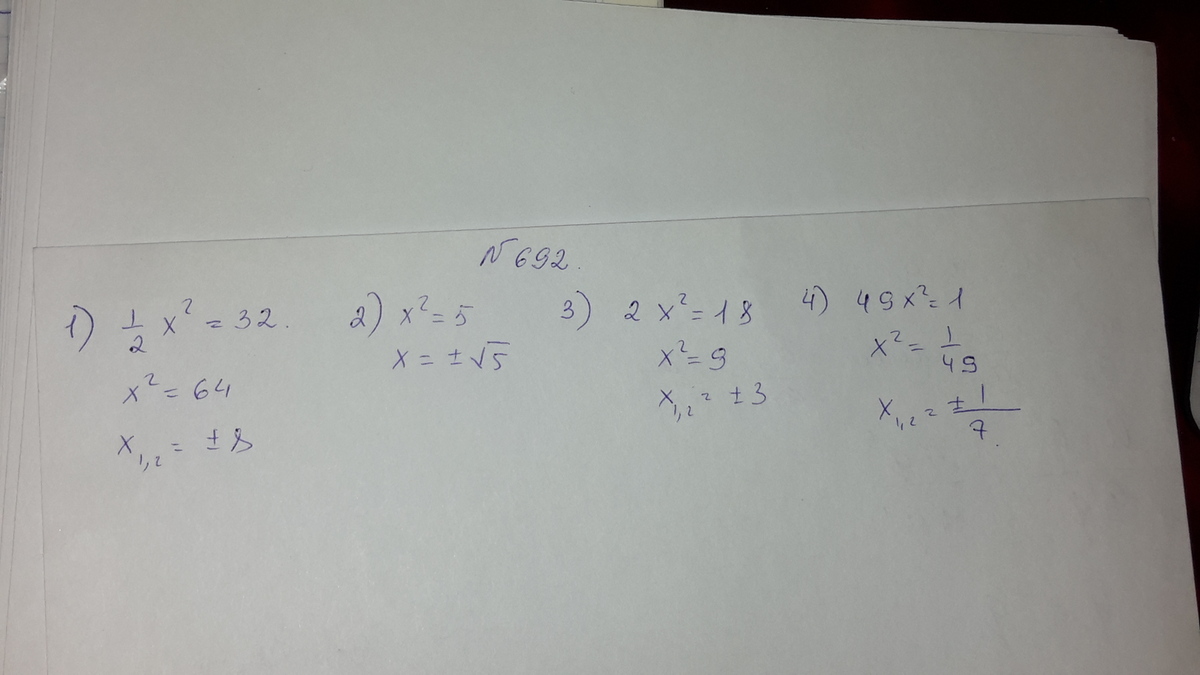 N 692.
1) 1/2 x² = 32.
x² = 64
x₁,₂ = ± 8
2) x² = 5
x = ± √5
3) 2 x² = 18
x² = 9
x₁,₂ = ± 3
4) 49 x² = 1
x² = 1/49
x₁,₂ = ± 1/7.